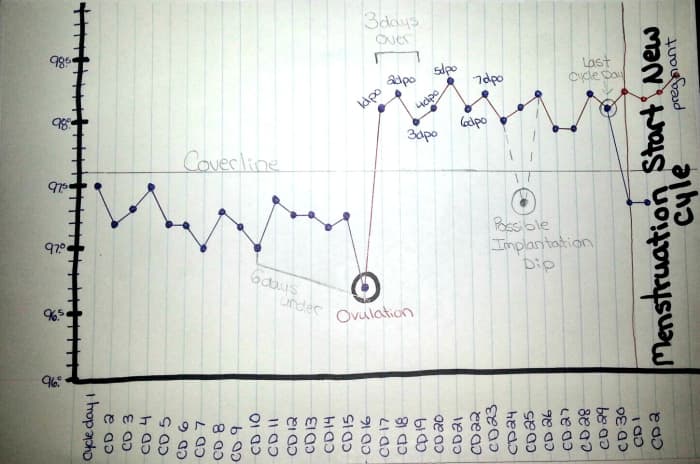 3 days
Over
98.5
98.0
97.5
97.0
96.5
96.0
1dpo
2dpo
3dpo
4dpo
5dpo
6dpo
7dpo
Last
Cycle Day
Coverline
6 days
under
Ovulation
Possible
Implantation
Dip
Menstruation Start New
Cyle
pregnant
Cycle day 1
CD 2
CD 3
CD 4
CD 5
CD 6
CD 7
CD 8
CD 9
CD 10
CD 11
CD 12
CD 13
CD 14
CD 15
CD 16
CD 17
CD 18
CD 19
CD 20
CD 21
CD 22
CD 23
CD 24
CD 25
CD 26
CD 27
CD 28
CD 29
CD 30
CD 1
CD 2